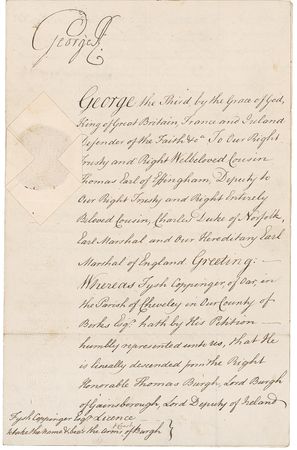 George R.
George the Third by the Grace of God,
King of Great Britain, France and Ireland
Defender of the Faith &c.a To Our Right
Trusty and Right Welbeloved Cousin
Thomas Earl of Effingham, Deputy to
Our Right Trusty and Right Entirely
Beloved Cousin, Charles Duke of Norfolk,
Earl Marshal and Our Hereditary Earl
Marshal of England Greeting:
Whereas Fysh Coppinger, of Oar, in
the Parish of Cheveley in Our County of
Berks Esq.r hath by His Petition
humbly represented unto us, that He
is lineally descended from the Right
Honorable Thomas Burgh, Lord Burgh
of Gainsborough, Lord Deputy of Ireland
Fysh Coppinger Esq.r Licence
to take the Name & bear the Arms of Burgh